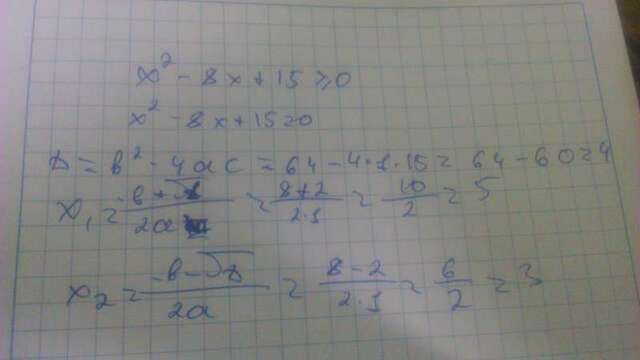 x² - 8x + 15 ≥ 0
x² - 8x + 15 = 0
D = b² - 4ac = 64 - 4·1·15 = 64 - 60 = 4
x₁ = (-b + √D)/2a = (8+2)/(2·1) = 10/2 = 5
x₂ = (-b - √D)/2a = (8-2)/(2·1) = 6/2 = 3